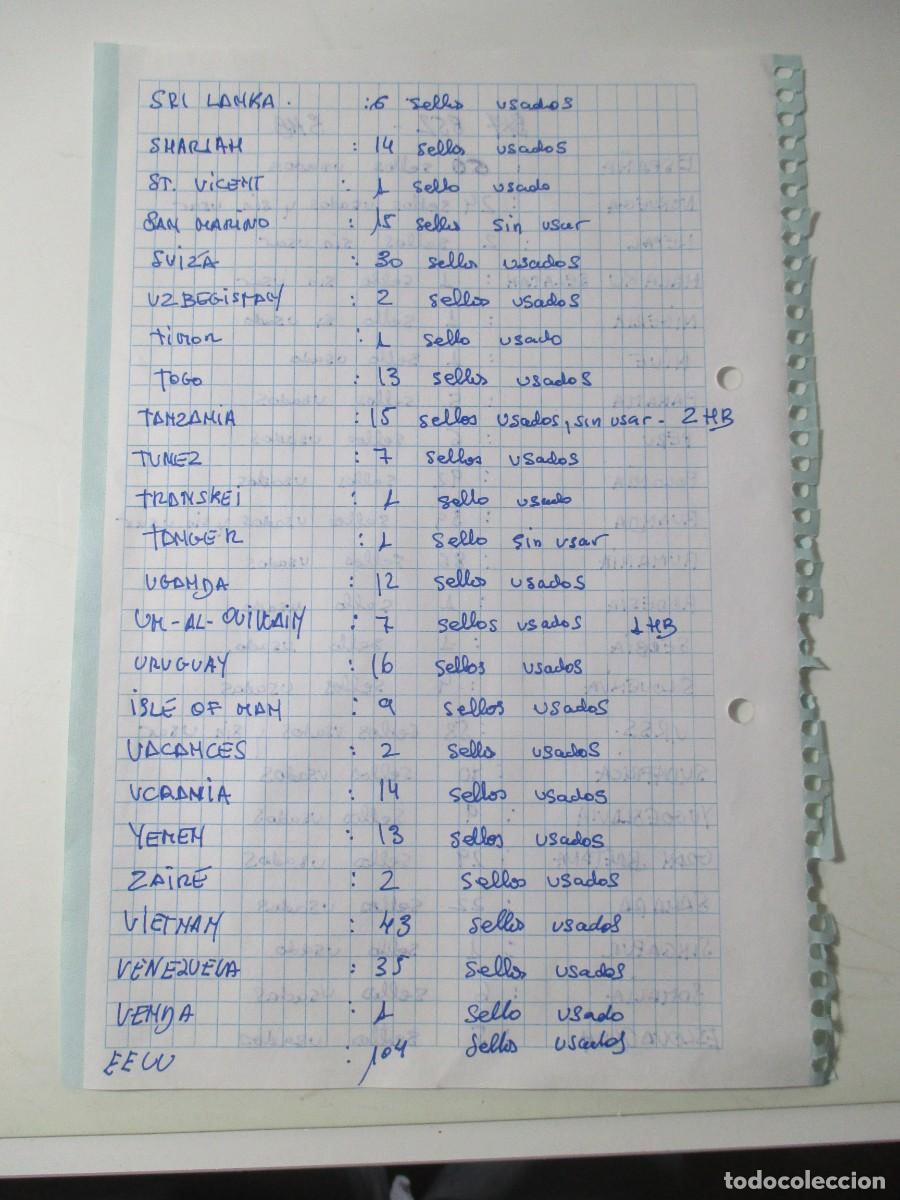 SRI LANKA. : 6 sellos usados
SHARJAH : 14 sellos usados
ST. VICENT : 1 sello usado
SAN MARINO : 15 sellos sin usar
SUIZA : 30 sellos usados
UZBEGISTAN : 2 sellos usados
TIMOR : 1 sello usado
TOGO : 13 sellos usados
TANZANIA : 15 sellos usados, sin usar - 2 HB
TUNEZ : 7 sellos usados
TRANSKEI : 1 sello usado
TANGER : 1 sello sin usar
UGANDA : 12 sellos usados
UM-AL-QUIWAIN : 7 sellos usados 1 HB
URUGUAY : 16 sellos usados
ISLE OF MAN : 9 sellos usados
VACANCES : 2 sellos usados
UCRANIA : 14 sellos usados
YEMEN : 13 sellos usados
ZAIRE : 2 sellos usados
VIETNAM : 43 sellos usados
VENEZUELA : 35 sellos usados
VENDA : 1 sello usado
EEUU : 104 sellos usados
todocoleccion